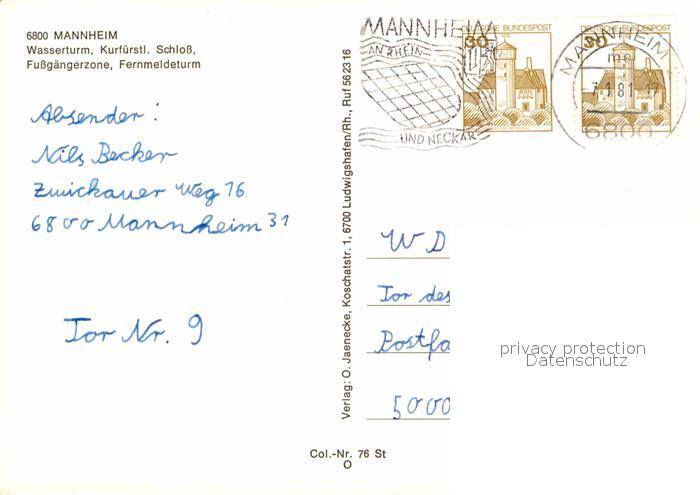 6800 MANNHEIM
Wasserturm, Kurfürstl. Schloß,
Fußgängerzone, Fernmeldeturm
Absender:
Nils Becker
Zwickauer Weg 16
6800 Mannheim 31
Tor Nr. 9
Verlag: O. Jaenecke, Koschatstr. 1, 6700 Ludwigshafen/Rh., Ruf 56 23 16
Col.-Nr. 76 St
O
MANNHEIM
AN RHEIN
UND NECKAR
30 DEUTSCHE BUNDESPOST
30 DEUTSCHE BUNDESPOST
MANNHEIM
mp
7.1.81.17
6800
WD
Tor des
Postfa
5000
privacy protection
Datenschutz